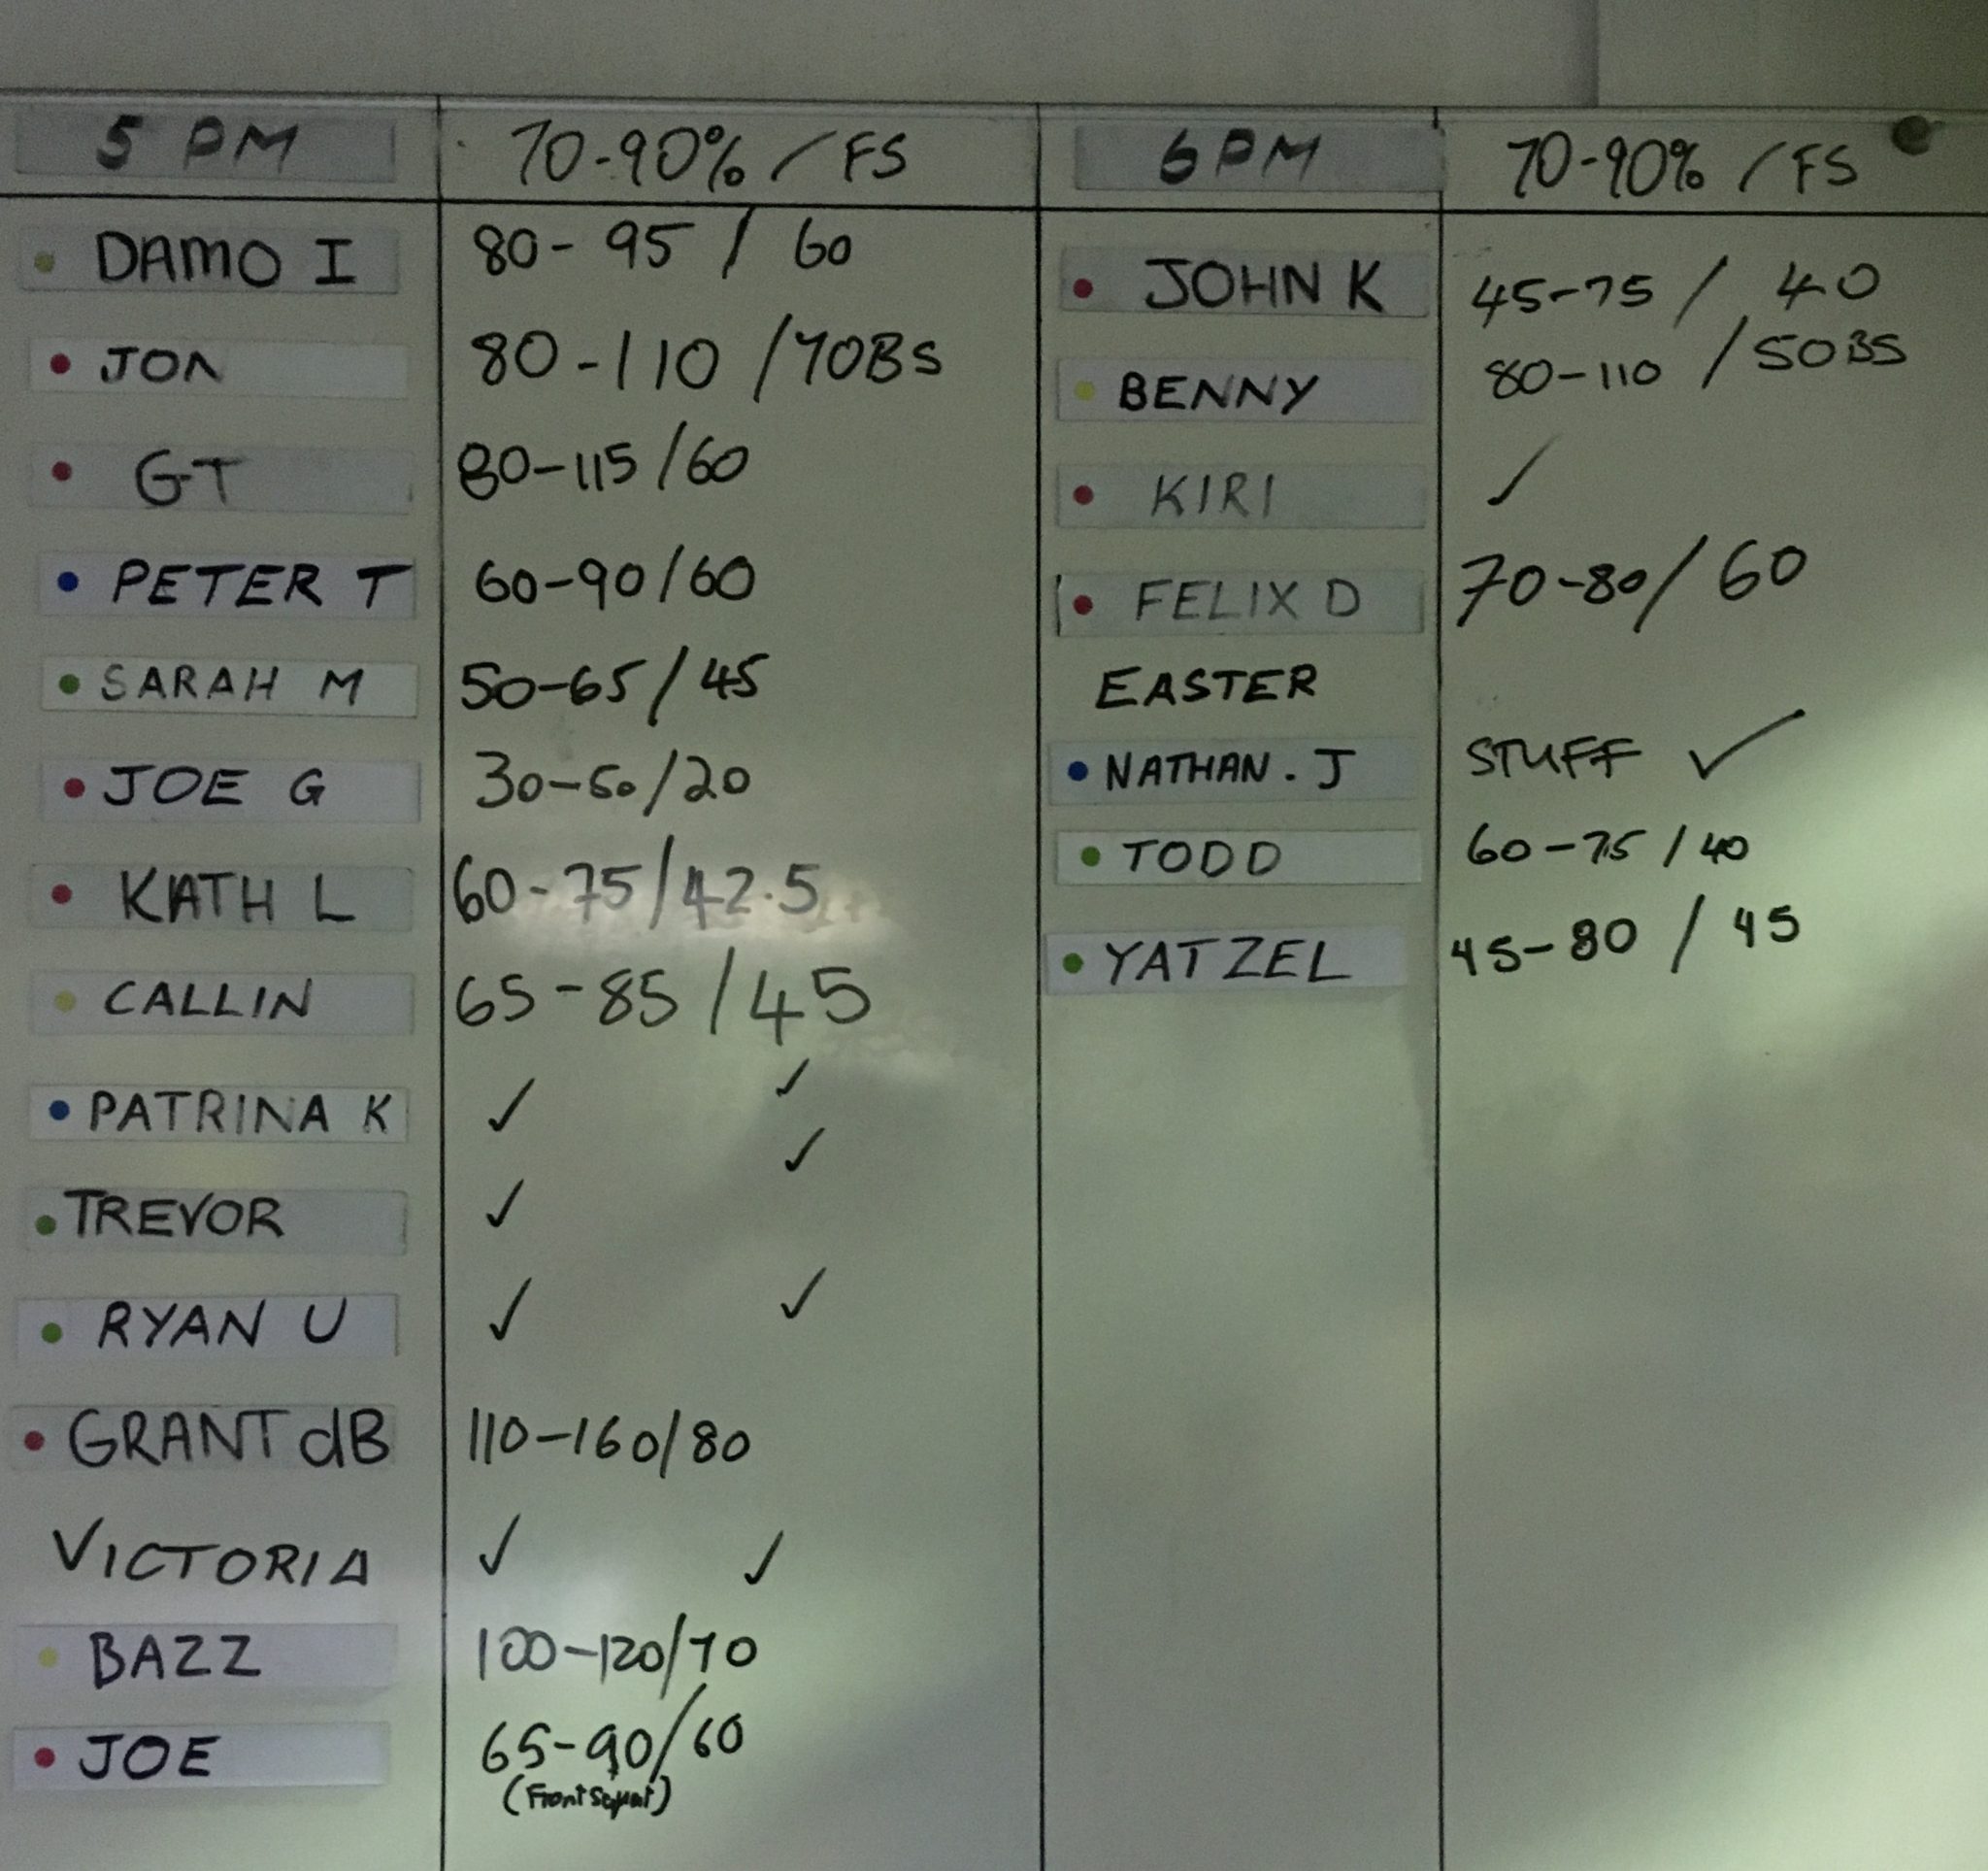 5 PM 70-90% / FS
DAMO I 80-95 / 60
JON 80-110 / 70BS
GT 80-115 / 60
PETER T 60-90 / 60
SARAH M 50-65 / 45
JOE G 30-50 / 20
KATH L 60-75 / 42.5
CALLIN 65-85 / 45
PATRINA K ✓ ✓
TREVOR ✓ ✓
RYAN U ✓ ✓
GRANT dB 110-160 / 80
VICTORIA ✓ ✓
BAZZ 100-120 / 70
JOE 65-90 / 60
(Front Squat)
6 PM 70-90% / FS
JOHN K 45-75 / 40
BENNY 80-110 / 50BS
KIRI ✓
FELIX D 70-80 / 60
EASTER
NATHAN. J STUFF ✓
TODD 60-75 / 40
YATZEL 45-80 / 45